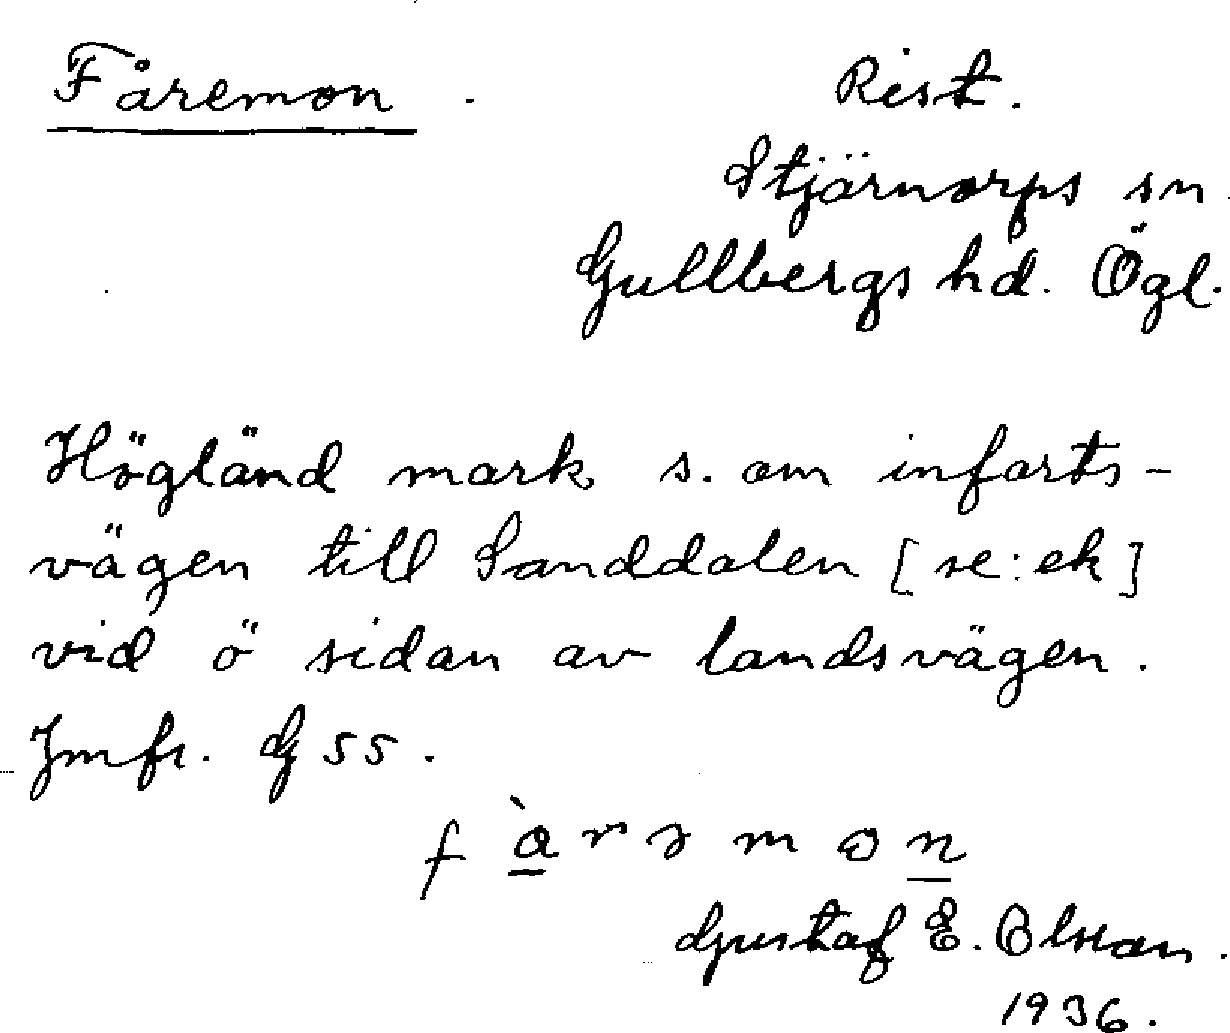 Fåremon. Rist.
Stjärnorps sn.
Gullbergs hd. Ögl.
Högländ mark s. om infarts-
vägen till Sanddalen [se: ek]
vid ö sidan av landsvägen.
Jmfr. G 55.
Gustaf E. Olsson.
1936.